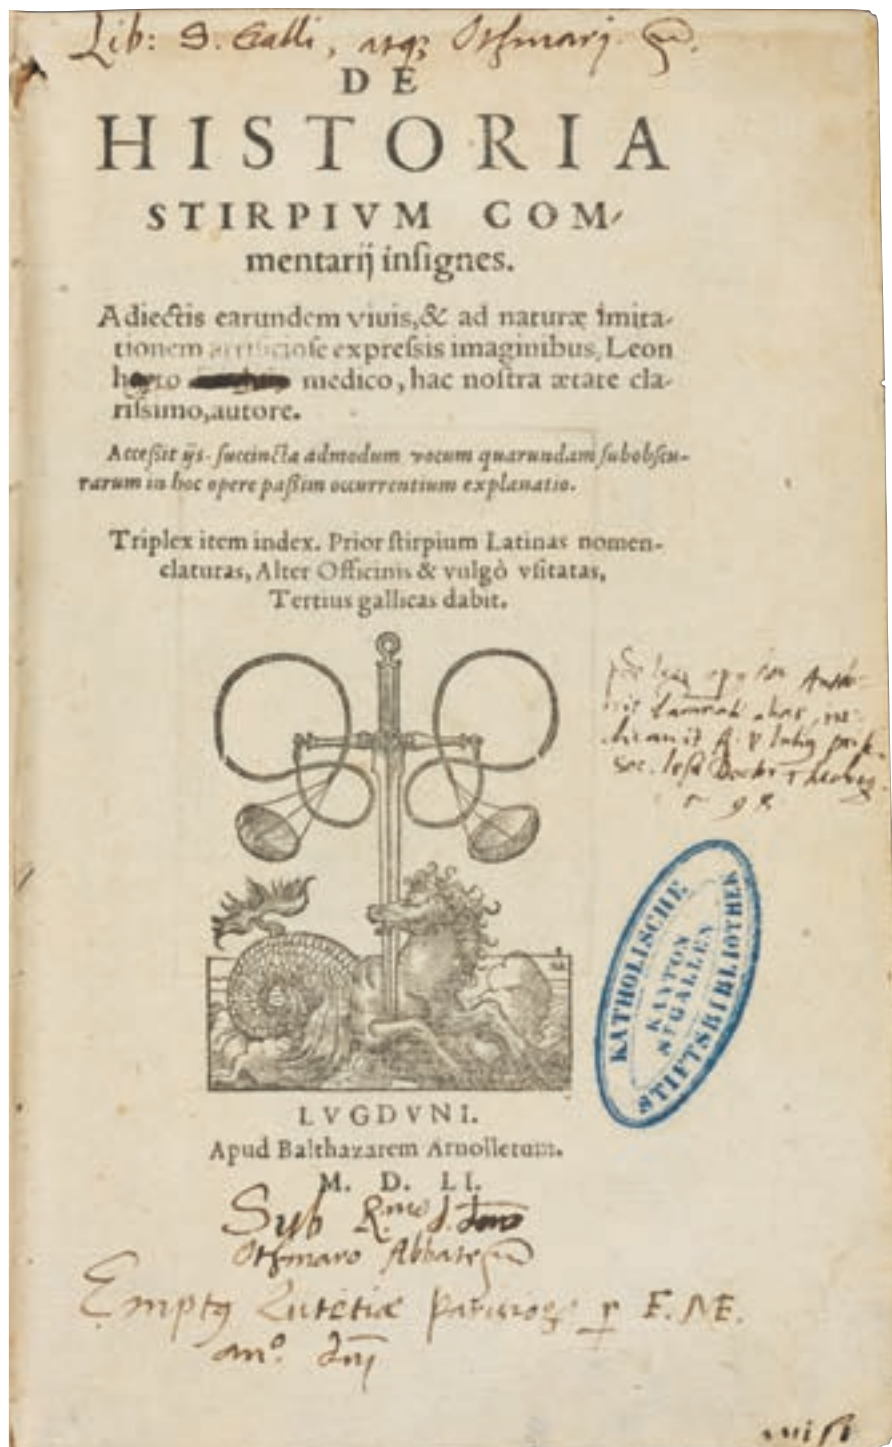 Lib: S. Galli, atq; Othmarj.
DE
HISTORIA
STIRPIVM COM-
mentarij insignes.
Adiectis earundem viuis, & ad naturæ imita-
tionem artificiose expressis imaginibus, Leon
medico, hac nostra ætate cla-
rissimo, autore.
Accessit ijs succincta admodum vocum quarundam subobscu-
rarum in hoc opere passim occurrentium explanatio.
Triplex item index. Prior stirpium Latinas nomen-
claturas, Alter Officinis & vulgò vsitatas,
Tertius gallicas dabit.
KATHOLISCHE
KANTON
ST GALLEN
STIFTSBIBLIOTHEK
LVGDVNI.
Apud Balthazarem Arnolletum.
M. D. LI.
Sub R.mo
Othmaro Abbate
Emptus Lutetiæ E. NE.
an.o